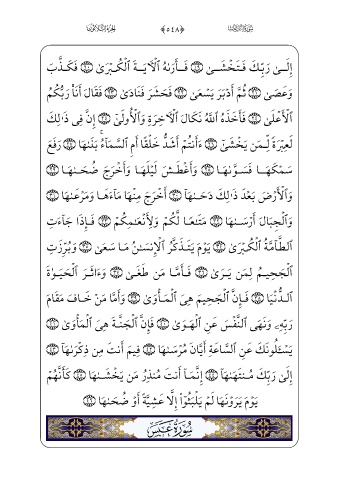 سُورَةُ النَّازِعَاتِ ﴿٥٤٨﴾ الجزء الثلاثون
إِلَىٰ رَبِّكَ فَتَخْشَىٰ ١٩ فَأَرَىٰهُ ٱلْءَايَةَ ٱلْكُبْرَىٰ ٢٠ فَكَذَّبَ
وَعَصَىٰ ٢١ ثُمَّ أَدْبَرَ يَسْعَىٰ ٢٢ فَحَشَرَ فَنَادَىٰ ٢٣ فَقَالَ أَنَا۠ رَبُّكُمُ
ٱلْأَعْلَىٰ ٢٤ فَأَخَذَهُ ٱللَّهُ نَكَالَ ٱلْءَاخِرَةِ وَٱلْأُولَىٰٓ ٢٥ إِنَّ فِى ذَٰلِكَ
لَعِبْرَةً لِّمَن يَخْشَىٰٓ ٢٦ ءَأَنتُمْ أَشَدُّ خَلْقًا أَمِ ٱلسَّمَآءُ ۚ بَنَىٰهَا ٢٧ رَفَعَ
سَمْكَهَا فَسَوَّىٰهَا ٢٨ وَأَغْطَشَ لَيْلَهَا وَأَخْرَجَ ضُحَىٰهَا ٢٩
وَٱلْأَرْضَ بَعْدَ ذَٰلِكَ دَحَىٰهَآ ٣٠ أَخْرَجَ مِنْهَا مَآءَهَا وَمَرْعَىٰهَا ٣١
وَٱلْجِبَالَ أَرْسَىٰهَا ٣٢ مَتَٰعًا لَّكُمْ وَلِأَنْعَٰمِكُمْ ٣٣ فَإِذَا جَآءَتِ
ٱلطَّآمَّةُ ٱلْكُبْرَىٰ ٣٤ يَوْمَ يَتَذَكَّرُ ٱلْإِنسَٰنُ مَا سَعَىٰ ٣٥ وَبُرِّزَتِ
ٱلْجَحِيمُ لِمَن يَرَىٰ ٣٦ فَأَمَّا مَن طَغَىٰ ٣٧ وَءَاثَرَ ٱلْحَيَوٰةَ
ٱلدُّنْيَا ٣٨ فَإِنَّ ٱلْجَحِيمَ هِىَ ٱلْمَأْوَىٰ ٣٩ وَأَمَّا مَنْ خَافَ مَقَامَ
رَبِّهِۦ وَنَهَى ٱلنَّفْسَ عَنِ ٱلْهَوَىٰ ٤٠ فَإِنَّ ٱلْجَنَّةَ هِىَ ٱلْمَأْوَىٰ ٤١
يَسْـَٔلُونَكَ عَنِ ٱلسَّاعَةِ أَيَّانَ مُرْسَىٰهَا ٤٢ فِيمَ أَنتَ مِن ذِكْرَىٰهَآ ٤٣
إِلَىٰ رَبِّكَ مُنتَهَىٰهَآ ٤٤ إِنَّمَآ أَنتَ مُنذِرُ مَن يَخْشَىٰهَا ٤٥ كَأَنَّهُمْ
يَوْمَ يَرَوْنَهَا لَمْ يَلْبَثُوٓا۟ إِلَّا عَشِيَّةً أَوْ ضُحَىٰهَا ٤٦
سُورَةُ عَبَسَ